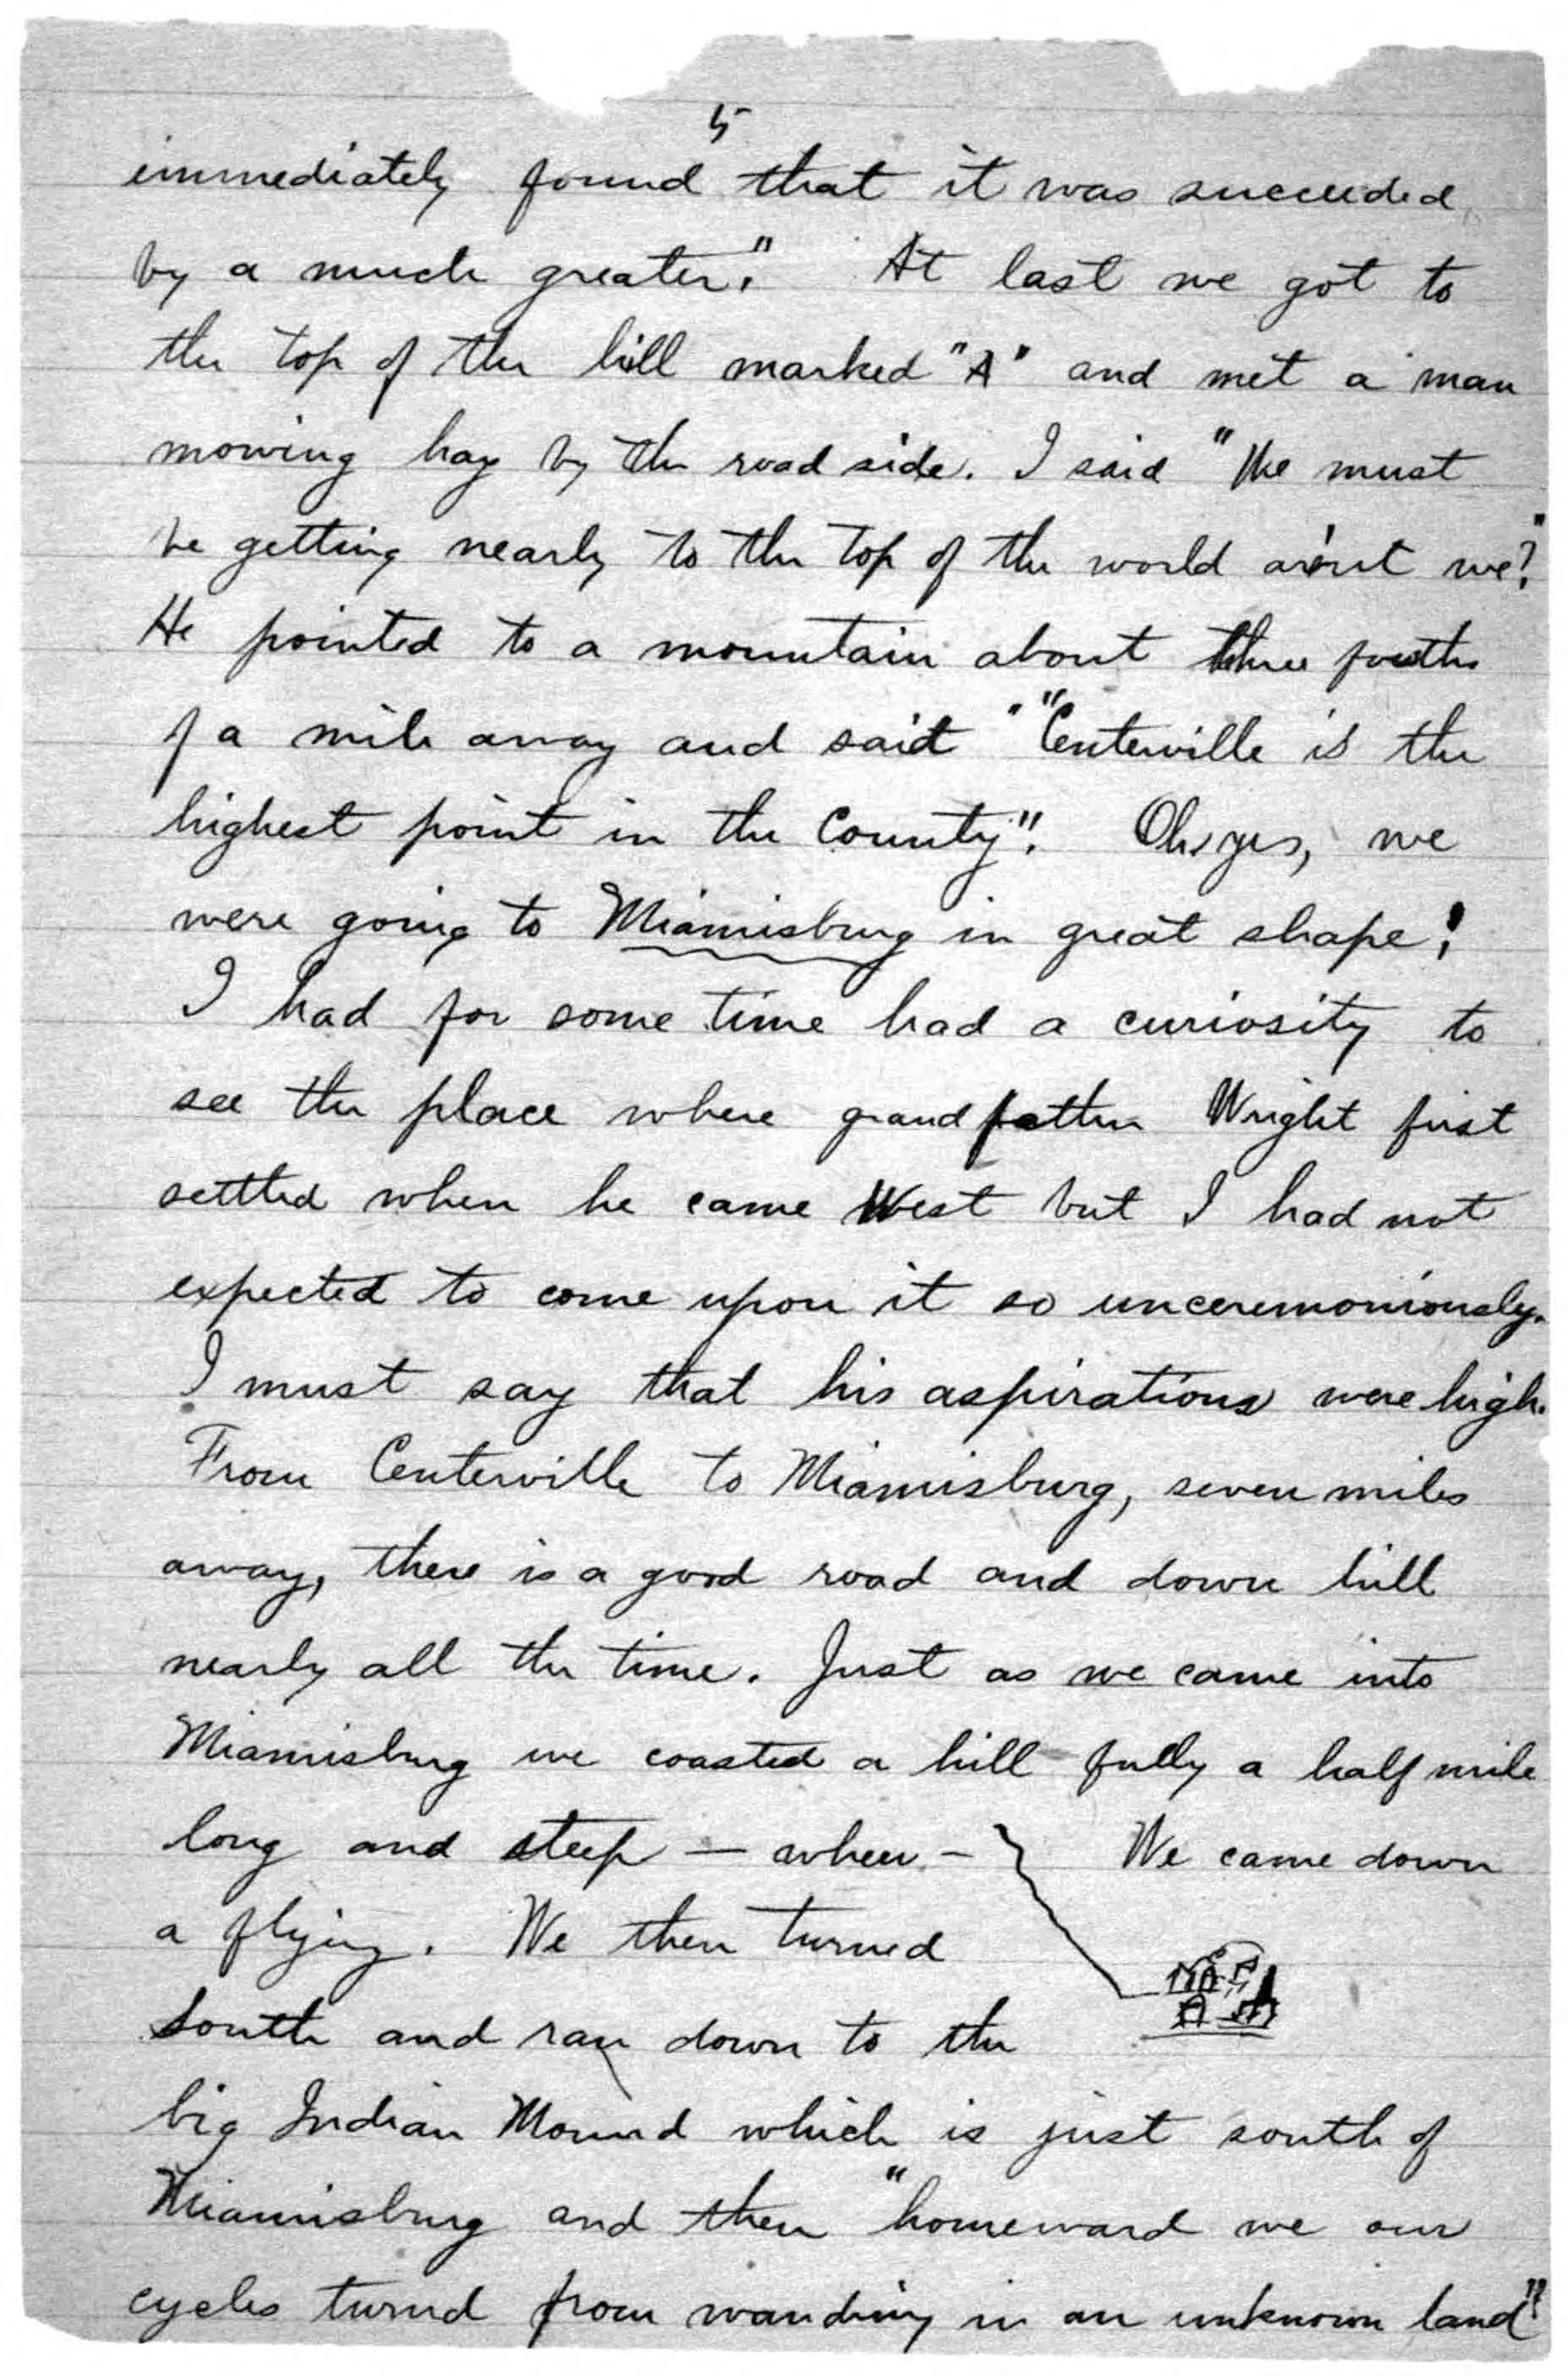 5
immediately found that it was succeeded
by a much greater." At last we got to
the top of the hill marked "A" and met a man
mowing hay by the road side. I said "We must
be getting nearly to the top of the world are'nt we?"
He pointed to a mountain about three fourths
of a mile away and said "Centerville is the
highest point in the County". Oh, yes, we
were going to Miamisburg in great shape!
I had for some time had a curiosity to
see the place where grandfather Wright first
settled when he came West but I had not
expected to come upon it so unceremoniously.
I must say that his aspirations were high.
From Centerville to Miamisburg, seven miles
away, there is a good road and down hill
nearly all the time. Just as we came into
Miamisburg we coasted a hill fully a half mile
long and steep — whew — We came down
a flying. We then turned
South and ran down to the
big Indian Mound which is just south of
Miamisburg and then "homeward we our
cycles turned from wandering in an unknown land"